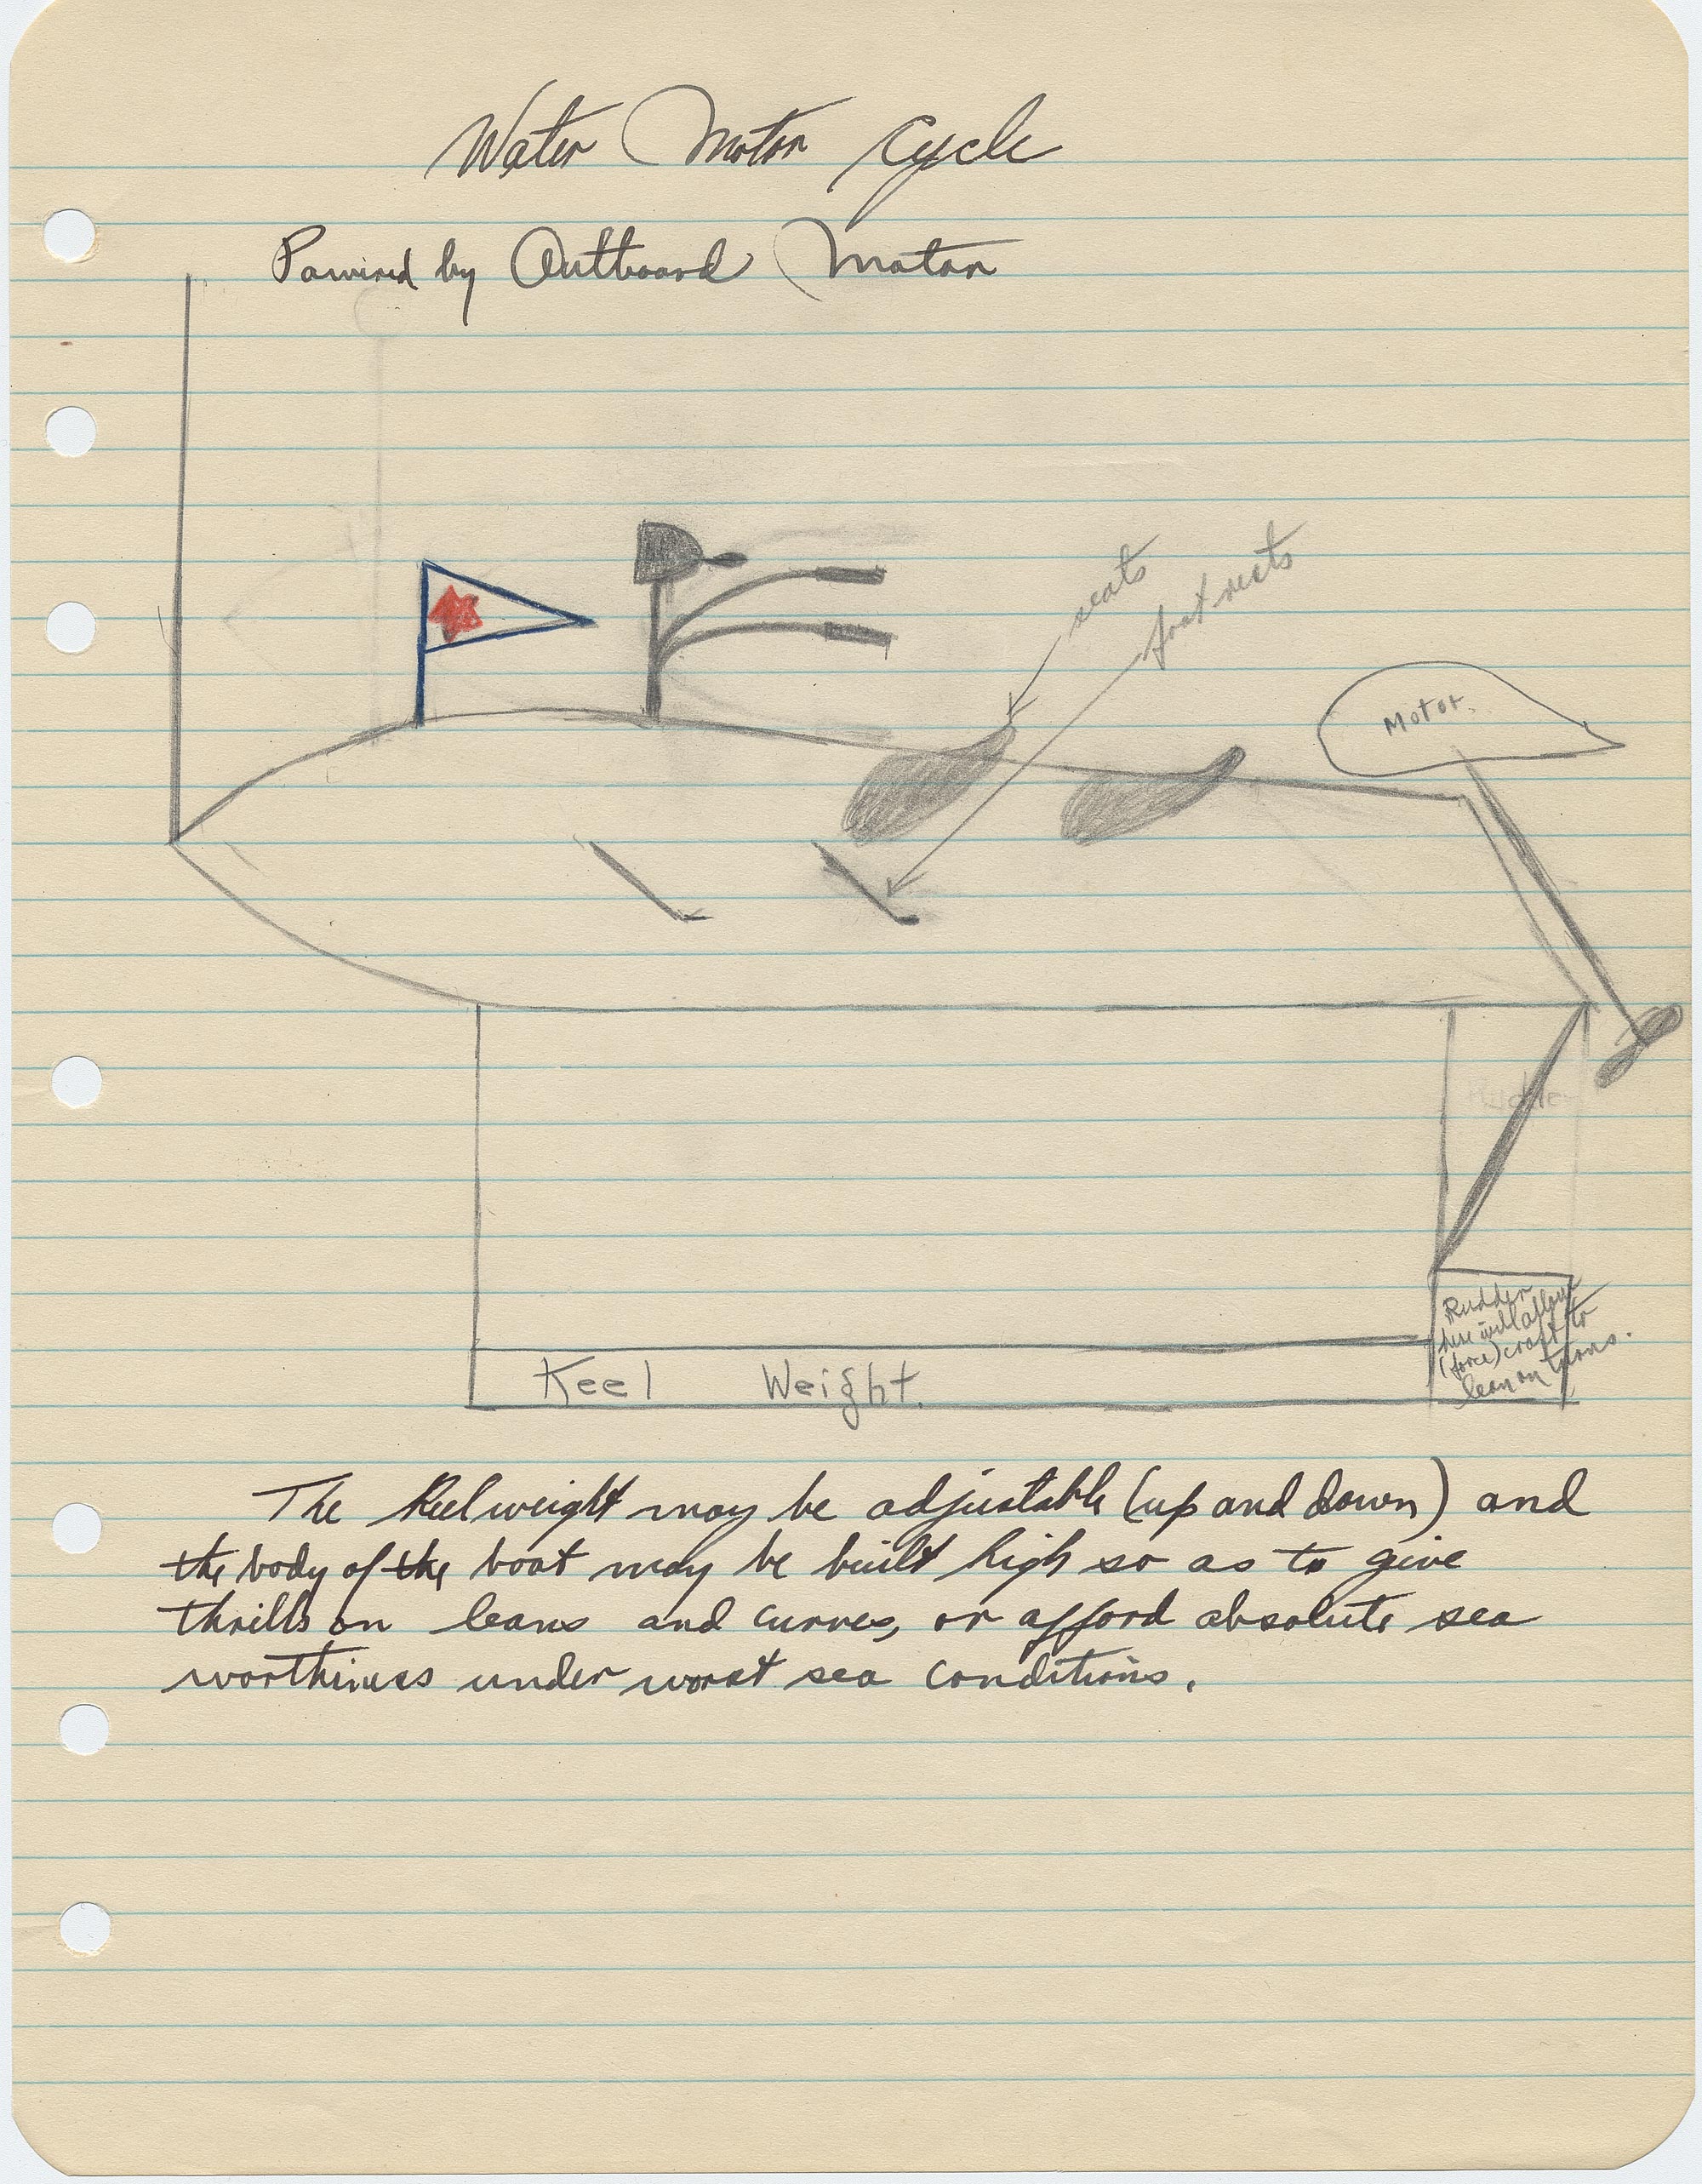 Water Motor Cycle
Powered by Outboard Motor
seats
foot rests
Motor.
Rudder
here will allow
(force) craft to
lean on turns.
Keel Weight.
The Keel weight may be adjustable (up and down) and
the body of the boat may be built high so as to give
thrills on leans and curves, or afford absolute sea
worthiness under worst sea conditions.